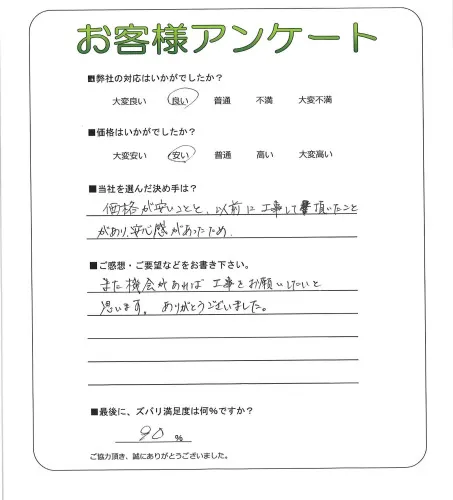 お客様アンケート
■弊社の対応はいかがでしたか？
大変良い 良い 普通 不満 大変不満
■価格はいかがでしたか？
大変安い 安い 普通 高い 大変高い
■当社を選んだ決め手は？
価格が安いことと、以前に工事して頂いたこと
があり、安心感があったため.
■ご感想・ご要望などをお書き下さい。
また機会があれば工事をお願いしたいと
思います。ありがとうございました。
■最後に、ズバリ満足度は何％ですか？
90 %
ご協力頂き、誠にありがとうございました。